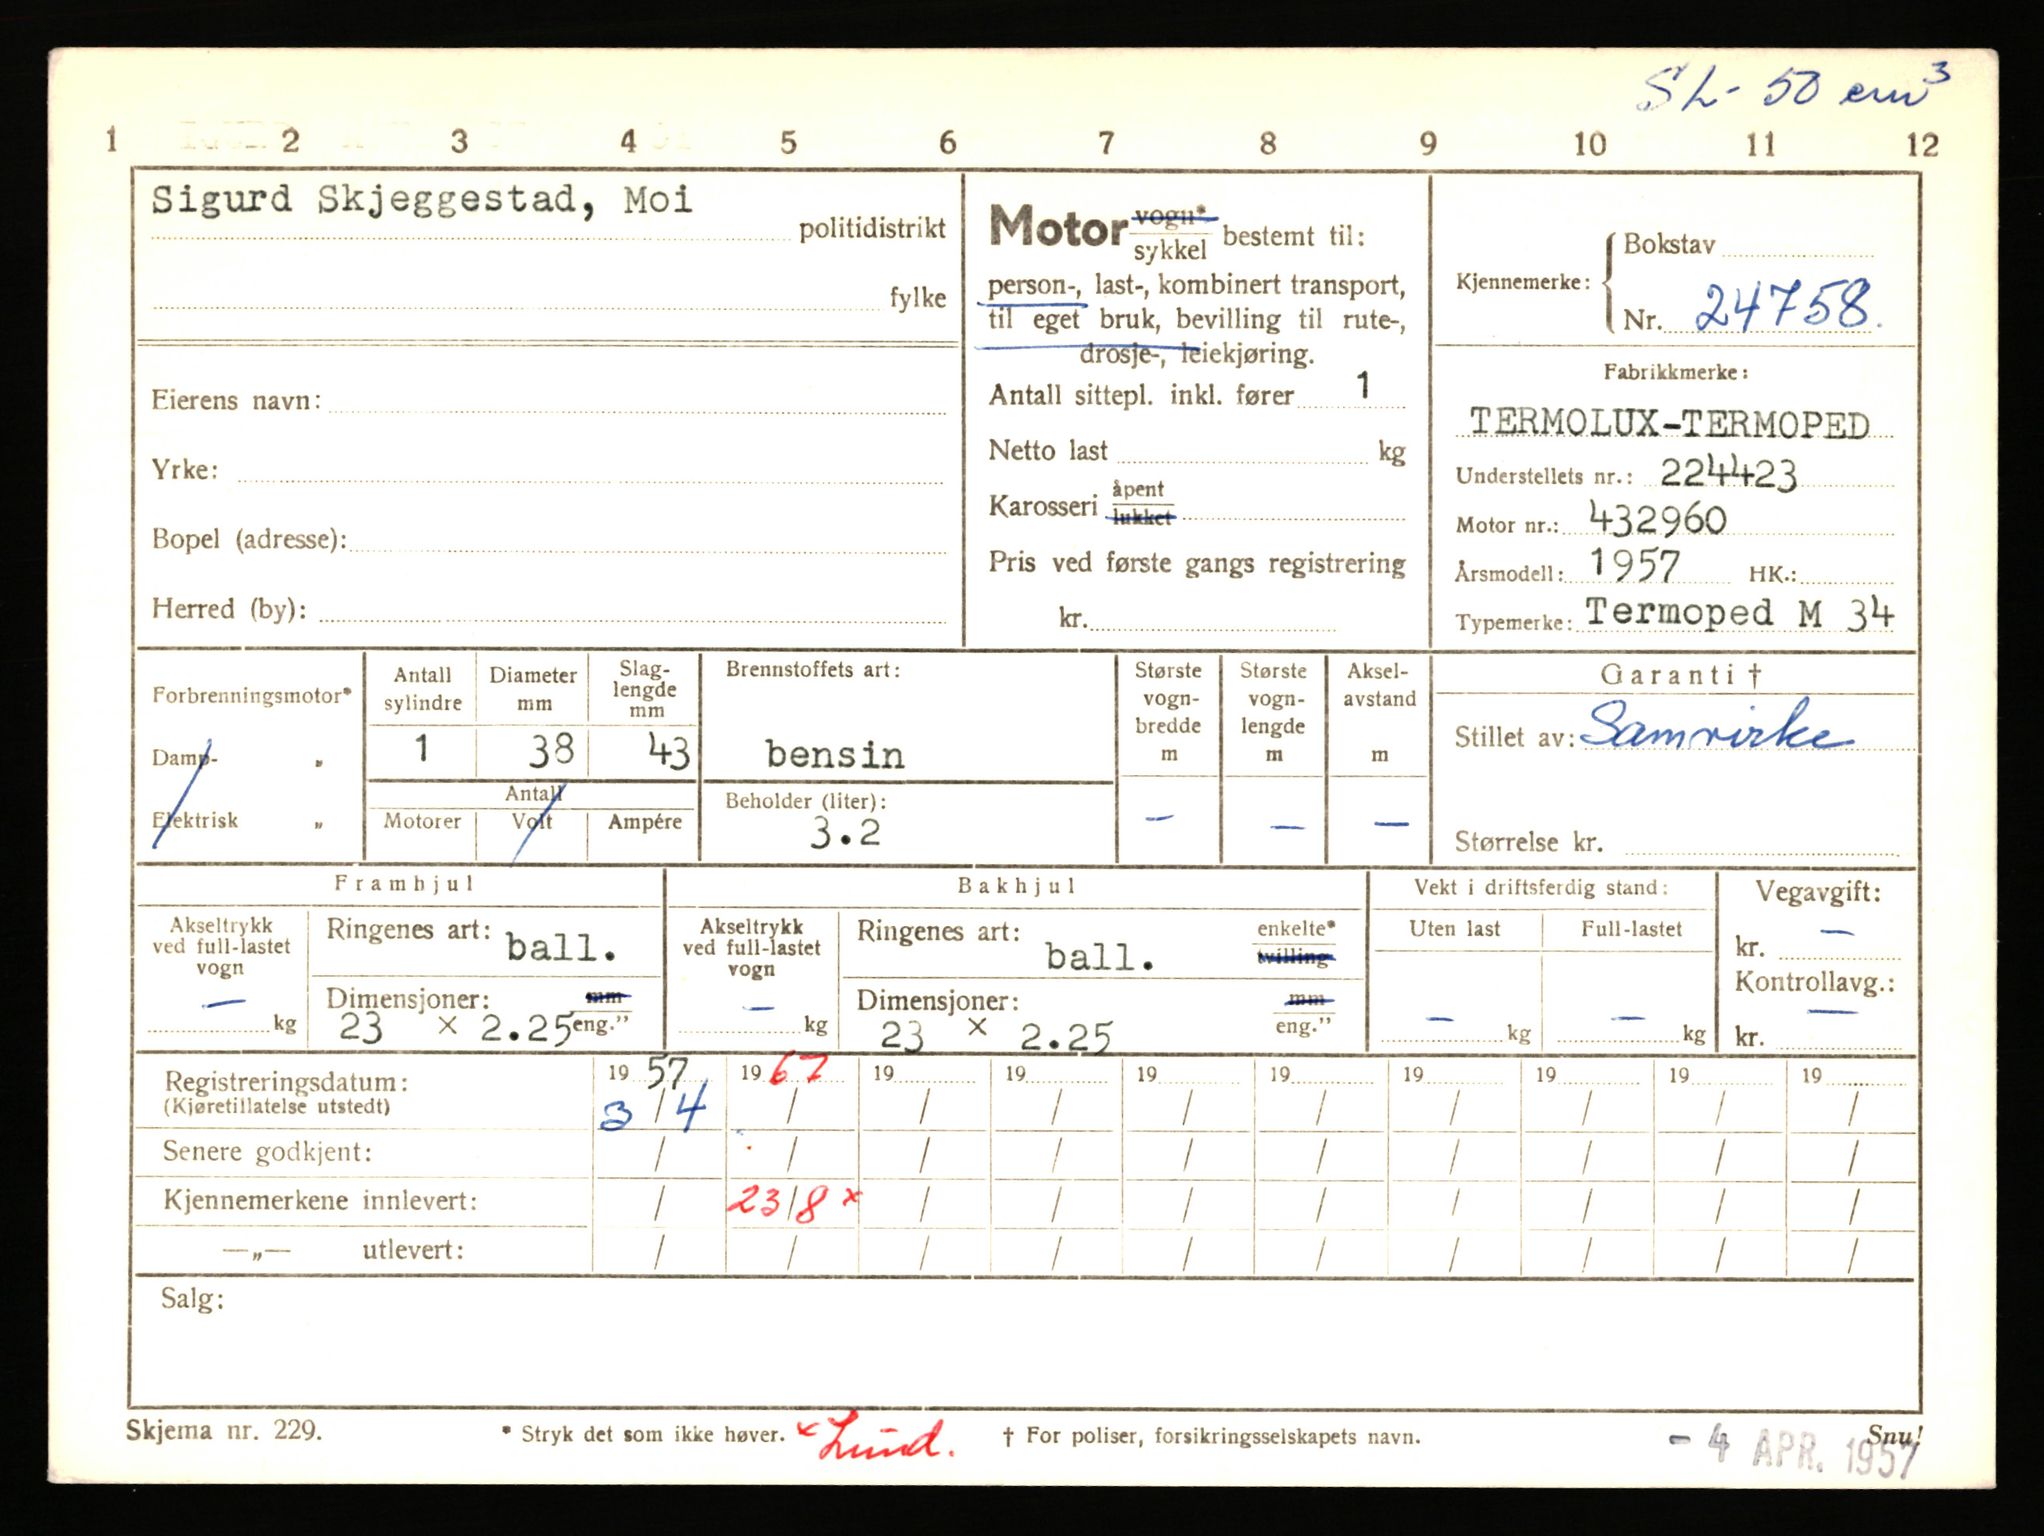 SL- 50 cm³
1 2 3 4 5 6 7 8 9 10 11 12
Sigurd Skjeggestad, Moi
politidistrikt
fylke
Eierens navn:
Yrke:
Bopel (adresse):
Herred (by):
Motor vogn* sykkel bestemt til:
person-, last-, kombinert transport,
til eget bruk, bevilling til rute-,
drosje-, leiekjøring.
Antall sittepl. inkl. fører 1
Netto last kg
Karosseri åpent lukket
Pris ved første gangs registrering
kr.
Kjennemerke: Bokstav
Nr. 24758.
Fabrikkmerke:
TERMOLUX-TERMOPED
Understellets nr.: 224423
Motor nr.: 432960
Årsmodell: 1957 HK.:
Typemerke: Termoped M 34
Forbrenningsmotor*
Damp- „
Elektrisk „
Antall sylindre
Diameter mm
Slag-lengde mm
1 38 43
Antall
Motorer Volt Ampére
Brennstoffets art:
bensin
Beholder (liter):
3.2
Største vogn-bredde m
Største vogn-lengde m
Aksel-avstand m
— — —
Garanti †
Stillet av: Samvirke
Størrelse kr.
Framhjul
Akseltrykk ved full-lastet vogn
— kg
Ringenes art: ball.
Dimensjoner: mm
23 × 2.25 eng.”
Bakhjul
Akseltrykk ved full-lastet vogn
— kg
Ringenes art: ball. enkelte* tvilling
Dimensjoner: mm
23 × 2.25 eng.”
Vekt i driftsferdig stand:
Uten last Full-lastet
— kg — kg
Vegavgift:
kr. —
Kontrollavg.:
kr. —
Registreringsdatum: 19 57 19 67 19 19 19 19 19 19 19 19
(Kjøretillatelse utstedt) 3/4 / / / / / / / / /
Senere godkjent: / / / / / / / / / /
Kjennemerkene innlevert: / 23/8 × / / / / / / / /
—„— utlevert: / / / / / / / / / /
Salg:
Skjema nr. 229.
* Stryk det som ikke høver. × Lund.
† For poliser, forsikringsselskapets navn.
Snu!
- 4 APR. 1957